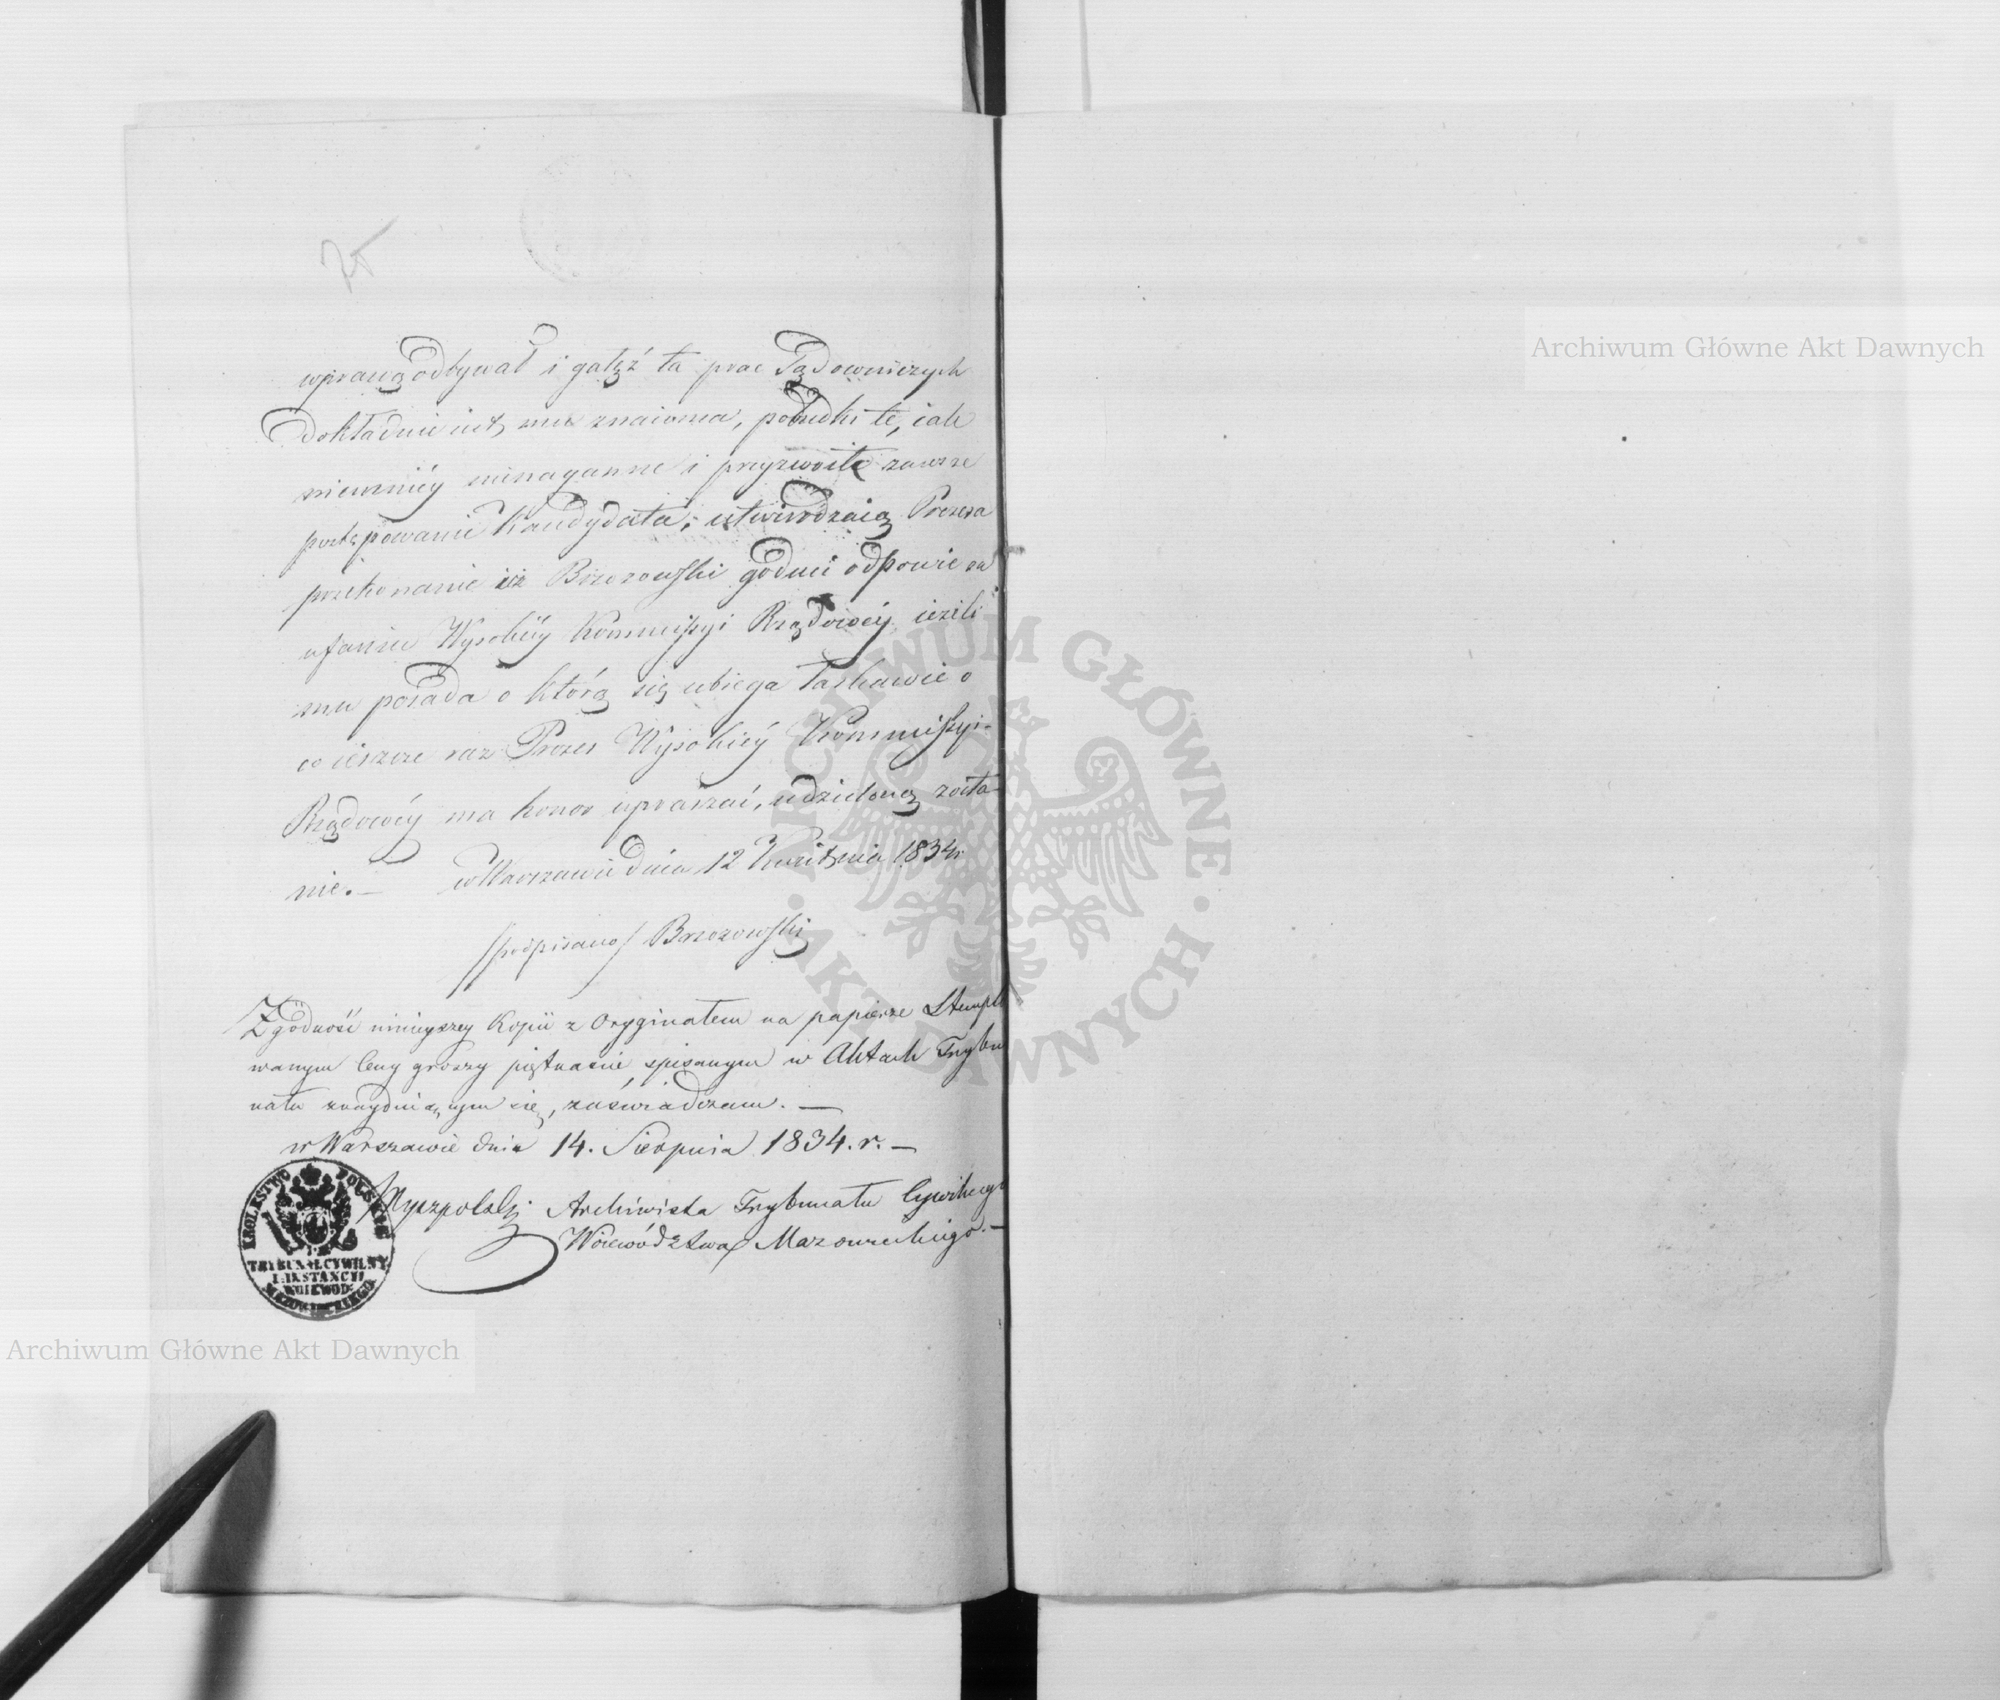 wprawą odbywał i gałęź ta prac Sądowniczych
dokładnie iest mu znaioma, pobudki te, iak
niemniéy nienaganne i przyzwoite zawsze
postępowanie Kandydata, utwierdzaią Prezesa
przekonanie iż Brzozowski godnie odpowie za
ufaniu Wysokiéy Kommissyi Rządowéy ieżeli
mu posada o którą się ubiega łaskawie o
co ieszcze raz Prezes Wysokiéy Kommissyi
Rządowéy ma honor upraszać, udzieloną zosta-
nie. — w Warszawie dnia 12 Kwietnia 1834 r
/podpisano/ Brzozowski
Zgodność ninieyszey Kopii z Oryginałem na papierze Stemplo
wanym Ceny groszy piętnaście, spisanym w Aktach Trybu
nału znayduiącym się, zaświadczam. —
w Warszawie dnia 14. Sierpnia 1834. r. —
Archiwista Trybunału Cywilnego
Woiewództwa Mazowieckiego. —
KROLESTWO POLSKIE
TRYBUNAŁ CYWILNY
I. INSTANCYI
WOIEWOD:
MAZOWIECKIEGO
Archiwum Główne Akt Dawnych
Archiwum Główne Akt Dawnych
ARCHIWUM GŁÓWNE
· AKT DAWNYCH ·